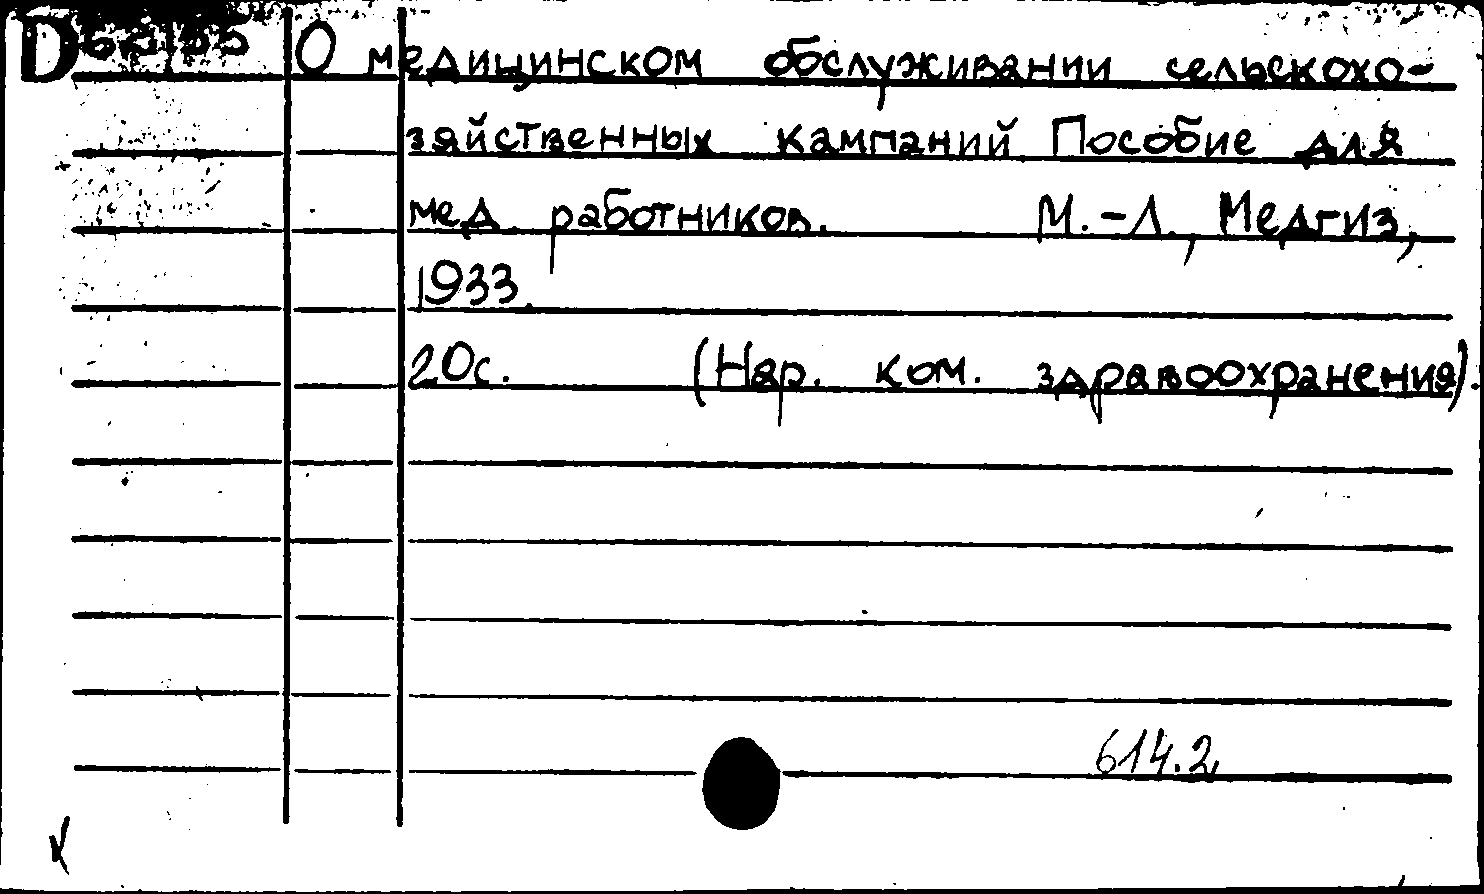 D
О медицинском обслуживании сельскохо-
зяйственных кампаний Пособие для
мед. работников. М.-Л., Медгиз,
1933.
20с. (Нар. ком. здравоохранения).
614.2